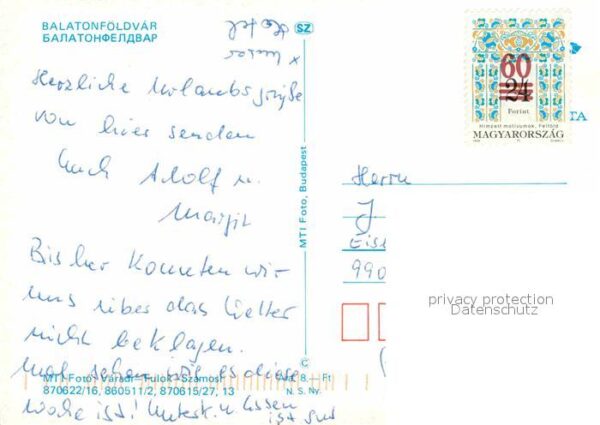 BALATONFÖLDVÁR
БАЛАТОНФЕЛДВАР
SZ
Herzliche Urlaubsgrüße
von hier senden
Euch Adolf u.
Margit
Bisher konnten wir
uns über das Wetter
nicht beklagen.
Mal sehen wie es diese
Woche ist! Unterk. u Essen
ist gut
MTI Foto: Váradi - Fülöp - Szamosi
Ára: 8.- Ft
870622/16, 860511/2, 870615/27, 13
N. S. Ny.
MTI Foto, Budapest
60
24
Forint
MAGYARORSZÁG
TA
Herrn
J
Eis
990
privacy protection
Datenschutz